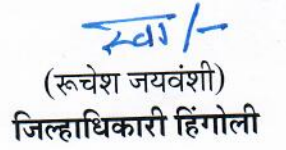 स्वा/-
(रूचेश जयवंशी)
जिल्हाधिकारी हिंगोली